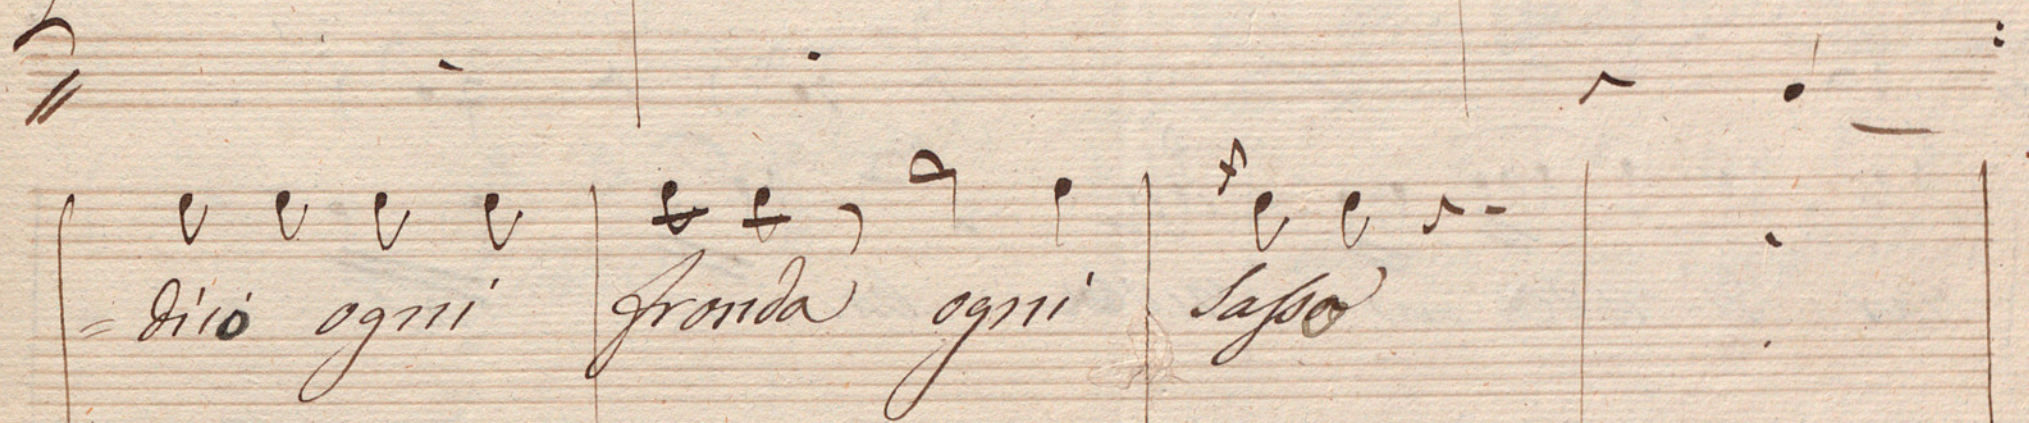 = dicò ogni fronda ogni sasso